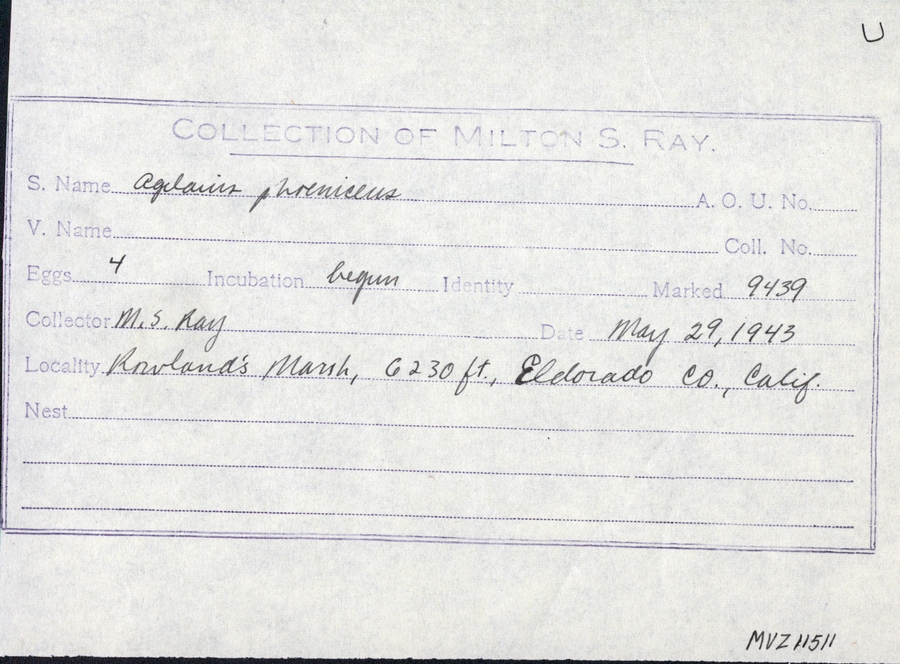 U
COLLECTION OF MILTON S. RAY.
S. Name Agelaius phoeniceus A. O. U. No.
V. Name Coll. No.
Eggs 4 Incubation begun Identity Marked 9439
Collector M. S. Ray Date May 29, 1943
Locality Rowland's Marsh, 6230 ft., Eldorado Co., Calif.
Nest
MVZ 11511